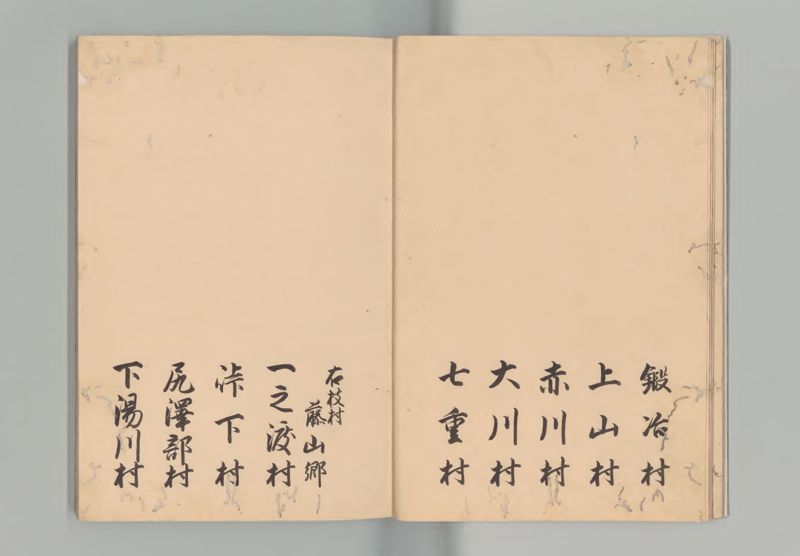 鍛冶村
上山村
赤川村
大川村
七重村
右枝村
藤山郷
一之渡村
峠下村
尻澤部村
下湯川村